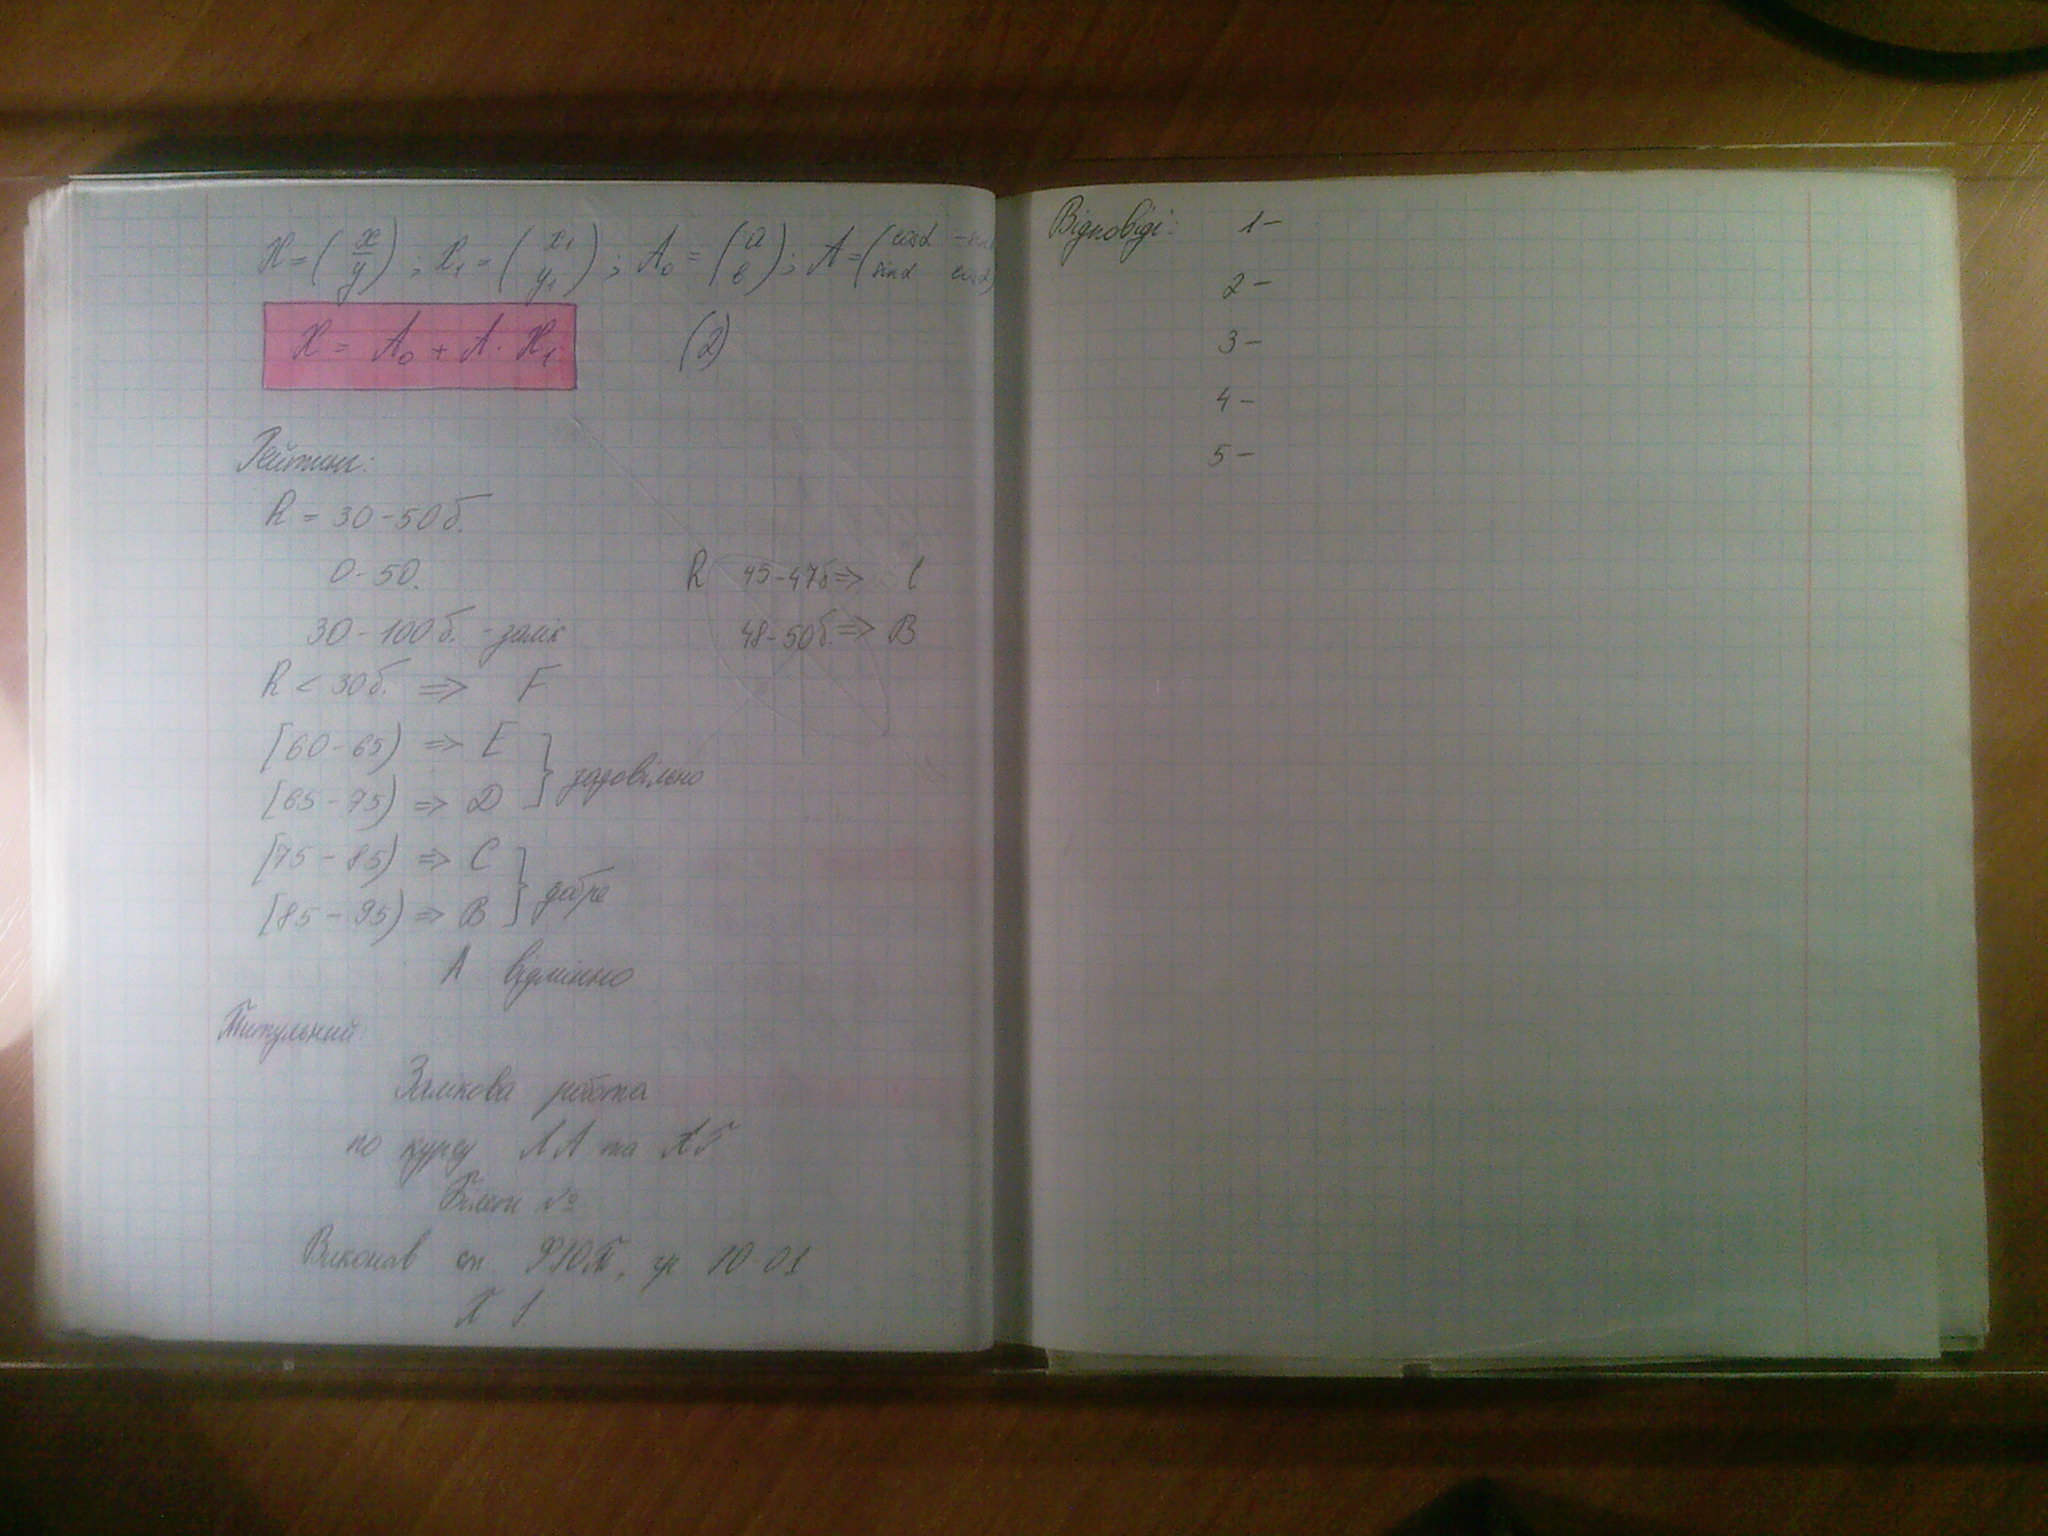 X = (x y) ; X₁ = (x₁ y₁) ; A₀ = (a в) ; A = (cosα -sinα sinα cosα)
X = A₀ + A · X₁ (2)
Рейтинг:
R = 30-50 б.
0-50.
R 45-47 б. => C
30-100 б. - залік
48-50 б. => B
R < 30 б. => F
[60-65) => E
[65-75) => D } задовільно
[75-85) => C
[85-95) => B } добре
A відмінно
Титульний
Залікова робота
по курсу ЛА та АГ
Білет №
Виконав ст. гр 10-01
Відповіді: 1-
2-
3-
4-
5-